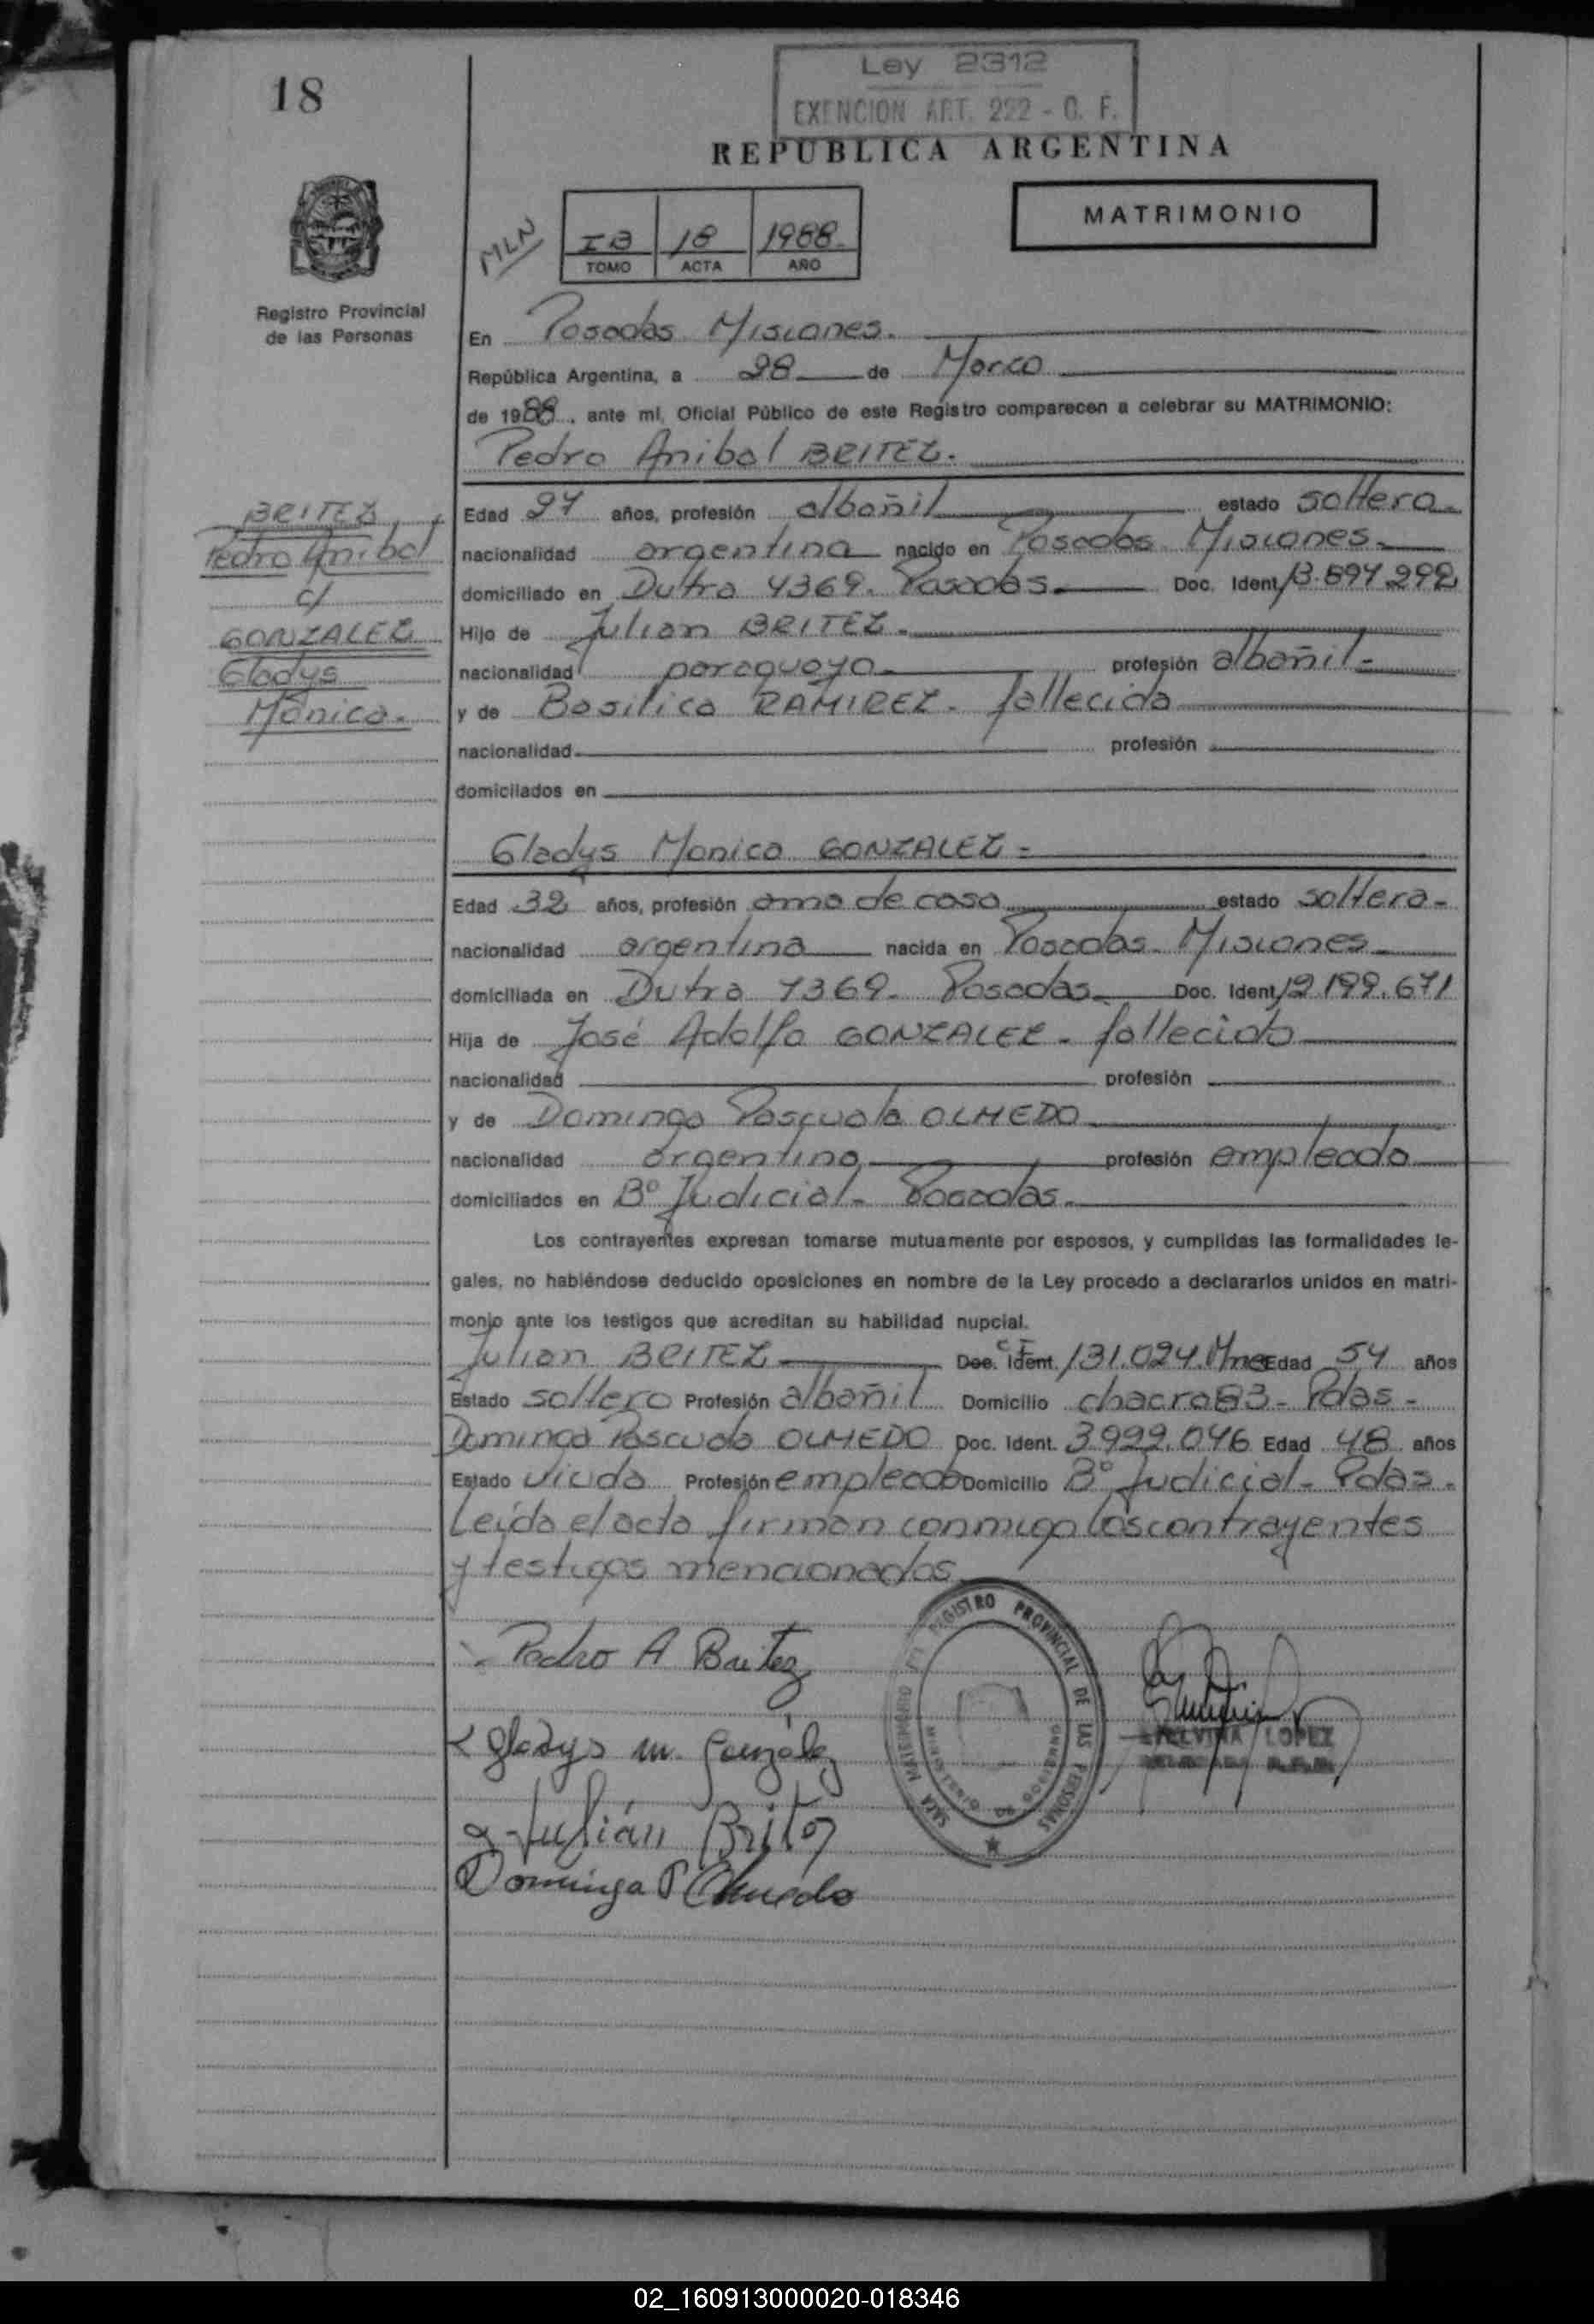 18
Ley 2312
EXENCION ART. 222 - C. F.
REPUBLICA ARGENTINA
MATRIMONIO
MLN
IB 18 1988.
TOMO ACTA AÑO
Registro Provincial
de las Personas
En Posadas Misiones.
República Argentina, a 28 de Marzo
de 1988, ante mí, Oficial Público de este Registro comparecen a celebrar su MATRIMONIO:
Pedro Anibal BRITEZ.
BRITEZ
Pedro Anibal
c/
GONZALEZ
Gladys
Mónica.
Edad 27 años, profesión albañil estado soltero.
nacionalidad argentina nacido en Posadas Misiones.
domiciliado en Dutra 4369. Posadas. Doc. Ident. 13.897.292
Hijo de Julian BRITEZ.
nacionalidad paraguaya profesión albañil
y de Basilica RAMIREZ. fallecida
nacionalidad profesión
domiciliados en
Gladys Monica GONZALEZ
Edad 32 años, profesión ama de casa estado soltera
nacionalidad argentina nacida en Posadas Misiones
domiciliada en Dutra 4369. Posadas. Doc. Ident. 12.199.671
Hija de José Adolfo GONZALEZ. fallecido
nacionalidad profesión
y de Dominga Pascuala OLMEDO
nacionalidad argentina profesión empleada
domiciliados en B° Judicial. Posadas.
Los contrayentes expresan tomarse mutuamente por esposos, y cumplidas las formalidades le-
gales, no habiéndose deducido oposiciones en nombre de la Ley procedo a declararlos unidos en matri-
monio ante los testigos que acreditan su habilidad nupcial.
Julian BRITEZ Doc. Ident. CI 131.024. Mnes Edad 54 años
Estado soltero Profesión albañil Domicilio chacra 83 - Pdas -
Dominga Pascuala OLMEDO Doc. Ident. 3.922.046 Edad 48 años
Estado viuda Profesión empleada Domicilio B° Judicial - Pdas.
Leída el acta firman conmigo los contrayentes
y testigos mencionados.
REGISTRO PROVINCIAL DE LAS PERSONAS
Pedro A Britez
Gladys M. González
LOPEZ
Julián Britez
Dominga P Olmedo
02_160913000020-018346